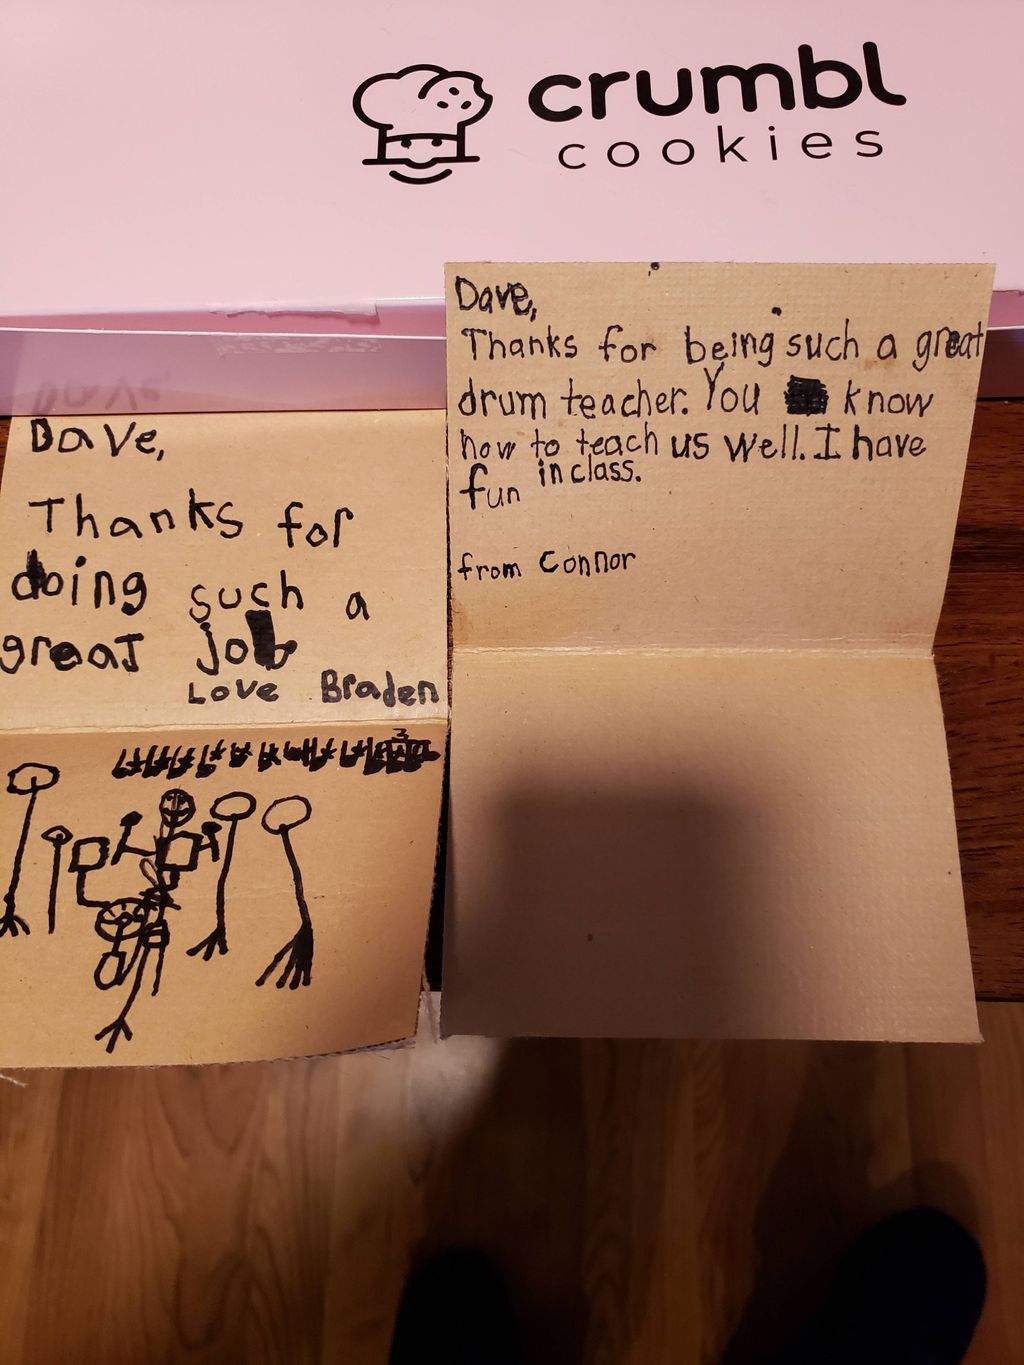 crumbl
cookies
Dave,
Thanks for
doing such a
great job
Love Braden
Dave,
Thanks for being such a great
drum teacher. You know
how to teach us well. I have
fun in class.
from Connor